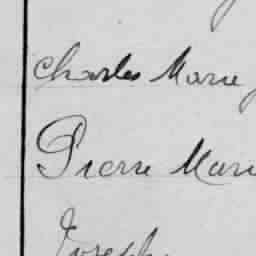 Charles Marie
Pierre Marie
Joseph